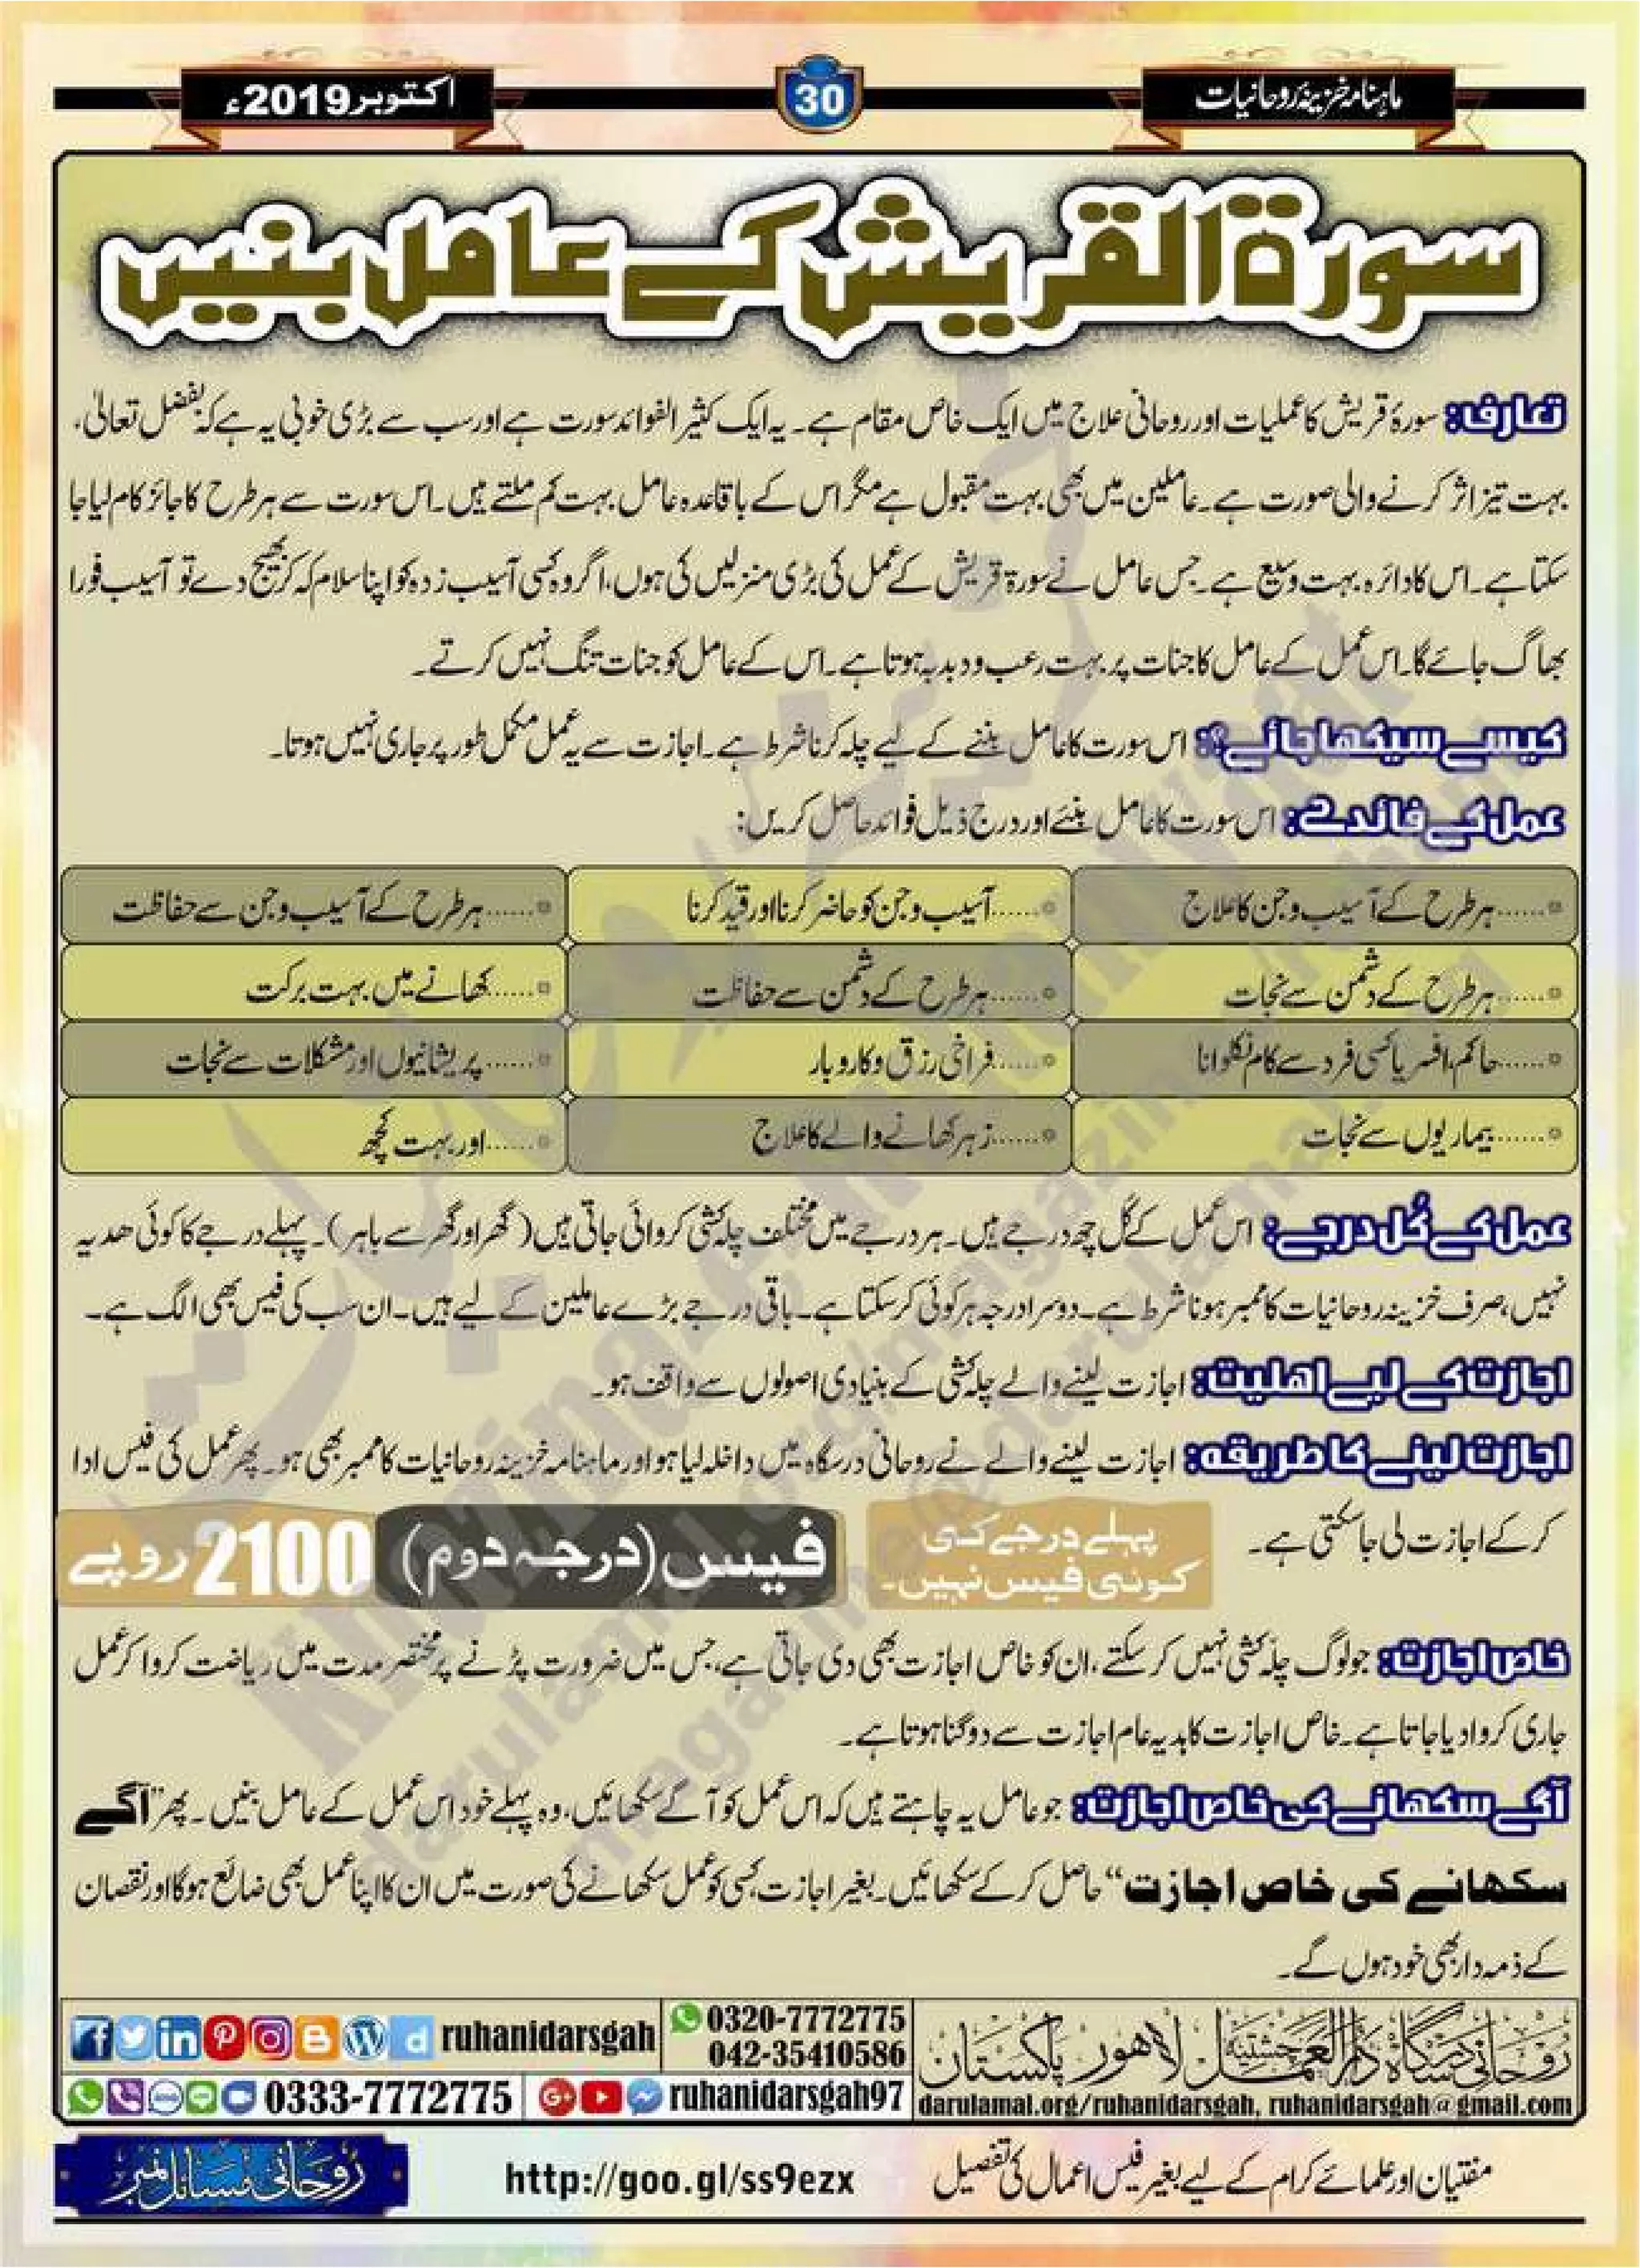 ماہنامہ خزینۂ روحانیات
30
اکتوبر 2019ء
سورۃ القریش کے عامل بنیں
تعارف: سورۂ قریش کا عملیات اور روحانی علاج میں ایک خاص مقام ہے۔ یہ ایک کثیر الفوائد سورت ہے اور سب سے بڑی خوبی یہ ہے کہ بفضل تعالیٰ،
بہت تیز اثر کرنے والی صورت ہے۔ عاملین میں بھی بہت مقبول ہے مگر اس کے باقاعدہ عامل بہت کم ملتے ہیں۔ اس سورت سے ہر طرح کا جائز کام لیا جا
سکتا ہے۔ اس کا دائرہ بہت وسیع ہے۔ جس عامل نے سورۃ قریش کے عمل کی بڑی منزلیں کی ہوں، اگر وہ کسی آسیب زدہ کو اپنا سلام کہہ کر بھیج دے تو آسیب فورا
بھاگ جائے گا۔ اس عمل کے عامل کا جنات پر بہت رعب و دبدبہ ہوتا ہے۔ اس کے عامل کو جنات تنگ نہیں کرتے۔
کیسے سیکھا جائے؟: اس سورت کا عامل بننے کے لیے چلہ کرنا شرط ہے۔ اجازت سے یہ عمل مکمل طور پر جاری نہیں ہوتا۔
عمل کے فائدے: اس سورت کا عامل بنئے اور درج ذیل فوائد حاصل کریں:
......ہر طرح کے آسیب و جن کا علاج
......آسیب و جن کو حاضر کرنا اور قید کرنا
......ہر طرح کے آسیب و جن سے حفاظت
......ہر طرح کے دشمن سے نجات
......ہر طرح کے دشمن سے حفاظت
......کھانے میں بہت برکت
......حاکم، افسر یا کسی فرد سے کام نکلوانا
......فراخی رزق و کاروبار
......پریشانیوں اور مشکلات سے نجات
......بیماریوں سے نجات
......زہر کھانے والے کا علاج
......اور بہت کچھ
عمل کے کُل درجے: اس عمل کے کُل چھ درجے ہیں۔ ہر درجے میں مختلف چلہ کشی کروائی جاتی ہیں (گھر اور گھر سے باہر)۔ پہلے درجے کا کوئی ھدیہ
نہیں، صرف خزینہ روحانیات کا ممبر ہونا شرط ہے۔ دوسرا درجہ ہر کوئی کر سکتا ہے۔ باقی درجے بڑے عاملین کے لیے ہیں۔ ان سب کی فیس بھی الگ ہے۔
اجازت کے لیے اھلیت: اجازت لینے والے چلہ کشی کے بنیادی اصولوں سے واقف ہو۔
اجازت لینے کا طریقہ: اجازت لینے والے نے روحانی درسگاہ میں داخلہ لیا ہو اور ماہنامہ خزینہ روحانیات کا ممبر بھی ہو۔ پھر عمل کی فیس ادا
کر کے اجازت لی جا سکتی ہے۔
پہلے درجے کی
کوئی فیس نہیں۔
فیس (درجہ دوم) 2100 روپے
خاص اجازت: جو لوگ چلہ کشی نہیں کر سکتے، ان کو خاص اجازت بھی دی جاتی ہے، جس میں ضرورت پڑنے پر مختصر مدت میں ریاضت کروا کر عمل
جاری کروا دیا جاتا ہے۔ خاص اجازت کا ہدیہ عام اجازت سے دوگنا ہوتا ہے۔
آگے سکھانے کی خاص اجازت: جو عامل یہ چاہتے ہیں کہ اس عمل کو آگے سکھائیں، وہ پہلے خود اس عمل کے عامل بنیں۔ پھر "آگے
سکھانے کی خاص اجازت" حاصل کر کے سکھائیں۔ بغیر اجازت، کسی کو عمل سکھانے کی صورت میں ان کا اپنا عمل بھی ضائع ہو گا اور نقصان
کے ذمہ دار بھی خود ہوں گے۔
روحانی درسگاہ دارالعمل چشتیہ لاہور پاکستان
darulamal.org/ruhanidarsgah, ruhanidarsgah@gmail.com
0320-7772775
042-35410586
ruhanidarsgah
0333-7772775
ruhanidarsgah97
مفتیان اور علمائے کرام کے لیے بغیر فیس اعمال کی تفصیل
http://goo.gl/ss9ezx
روحانی مسائل نمبر